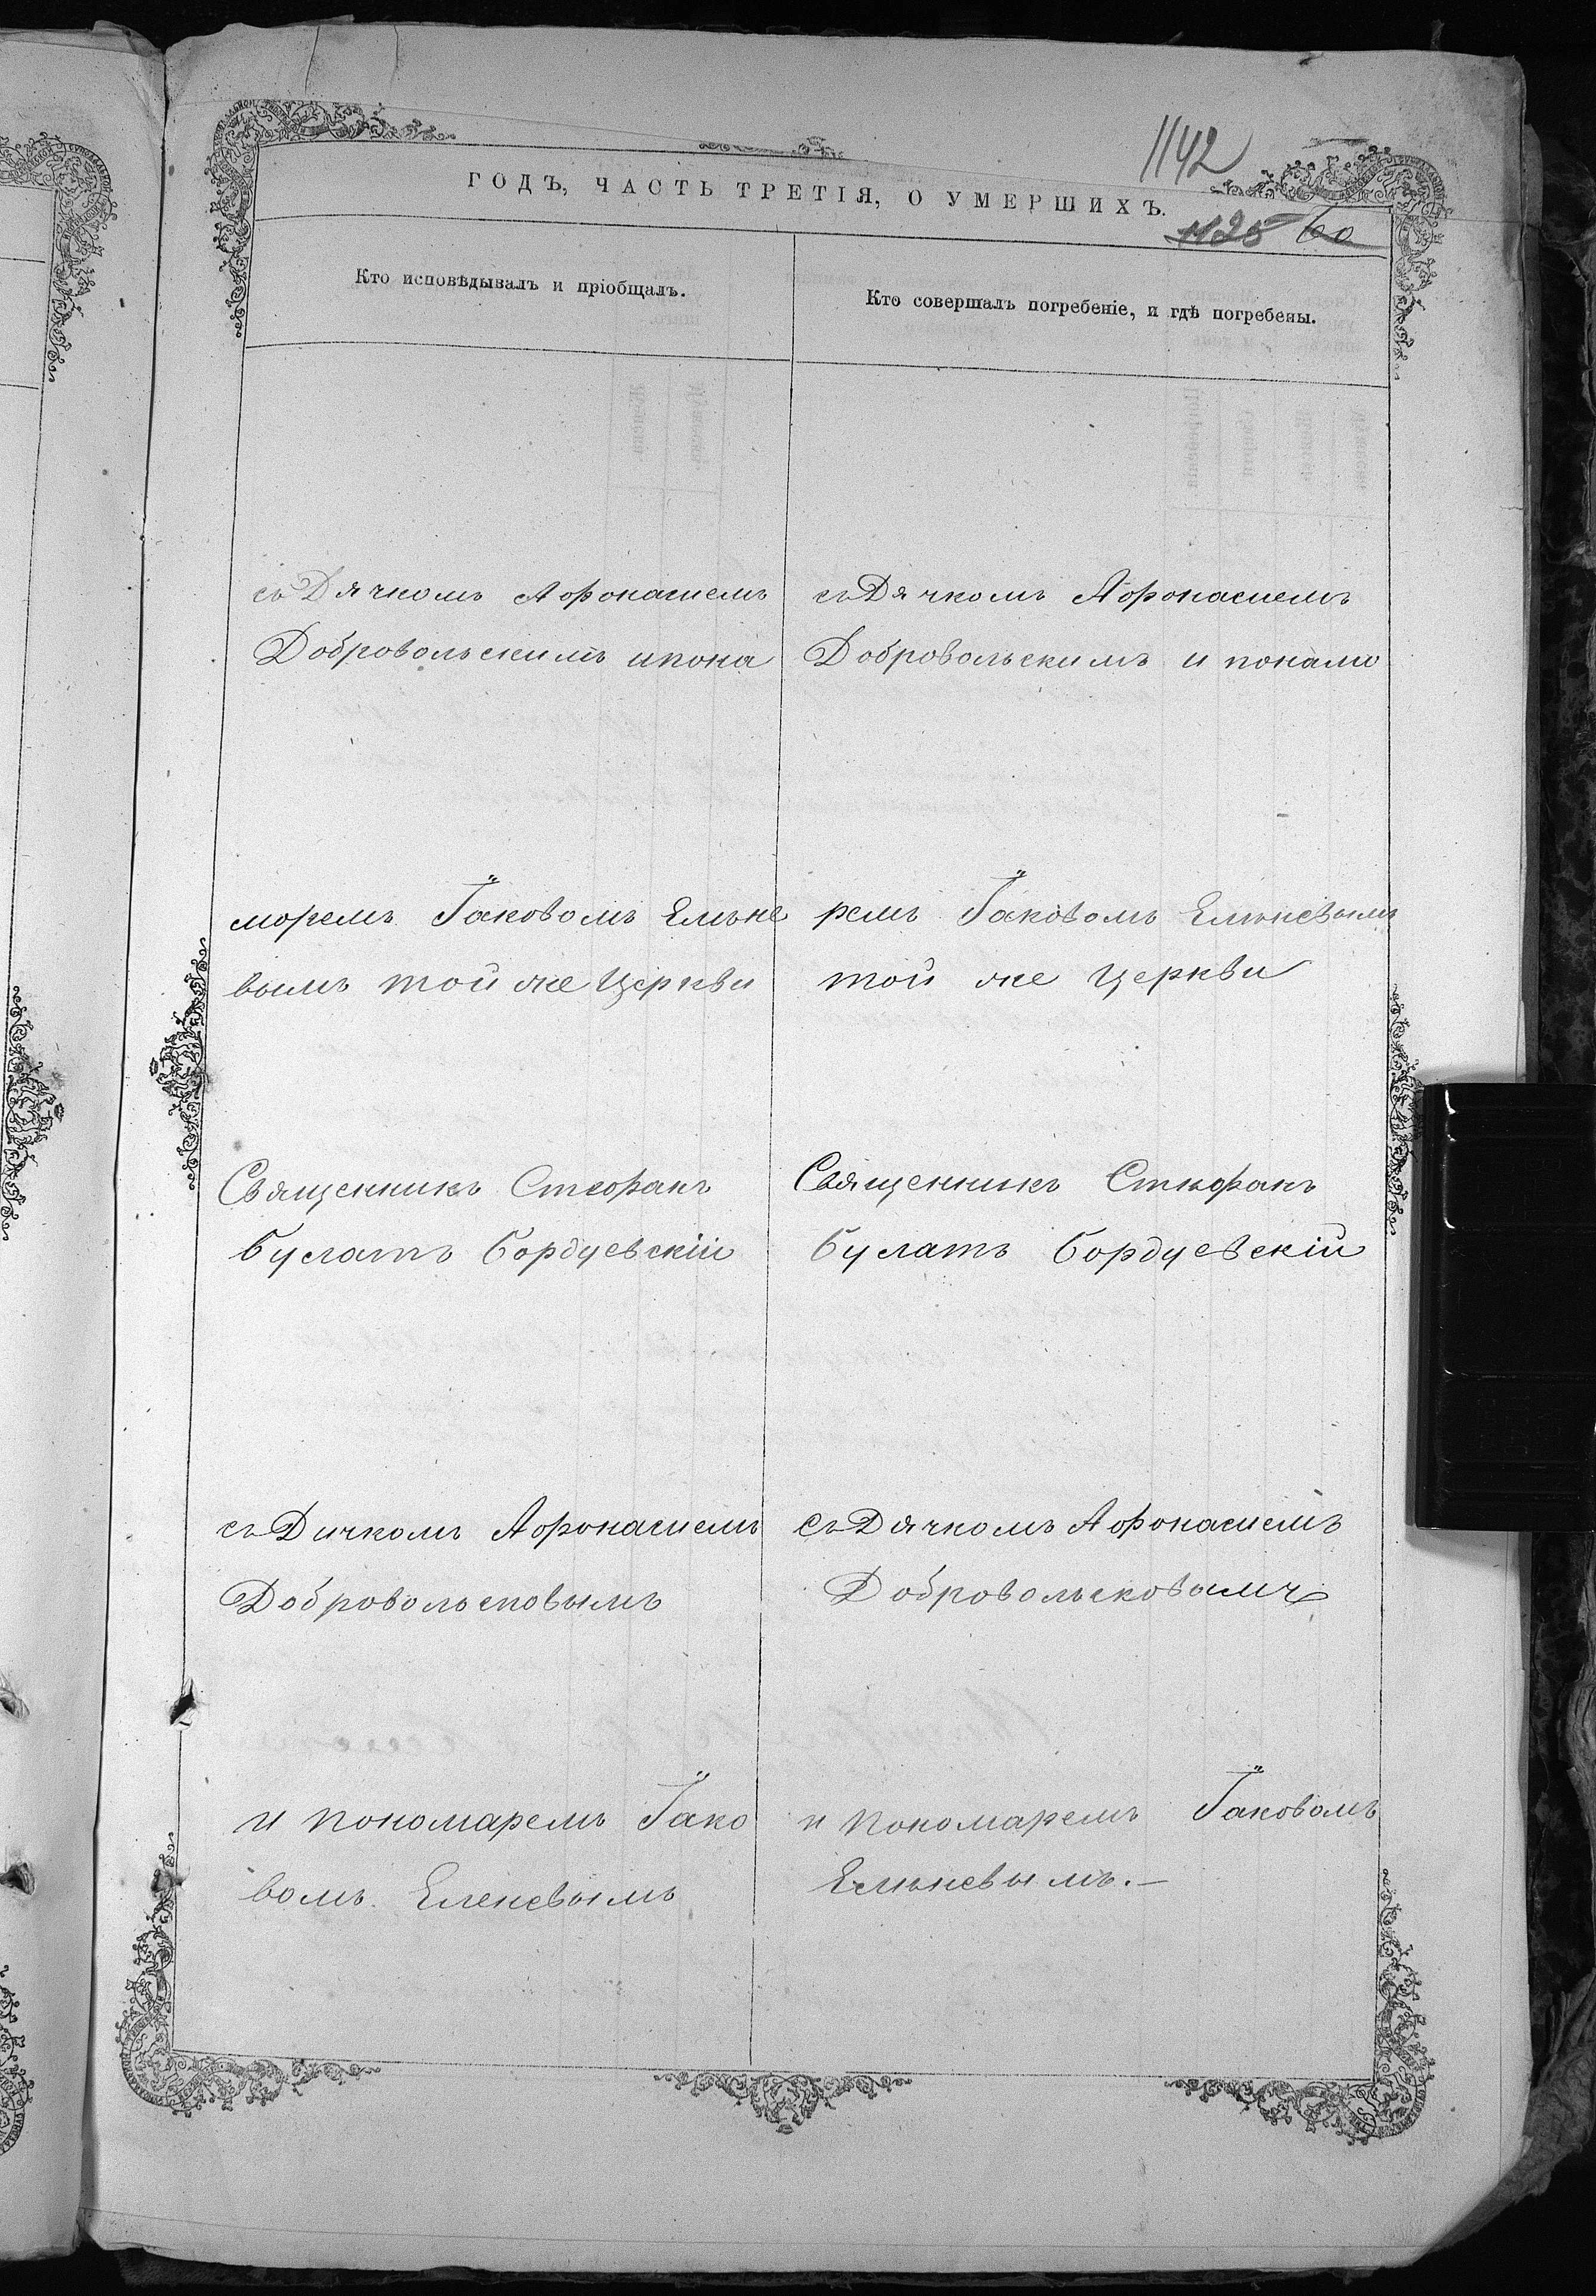 1142
ГОДЪ, ЧАСТЬ ТРЕТІЯ, О УМЕРШИХЪ.
1125 60
Кто исповѣдывалъ и пріобщалъ.
Кто совершалъ погребеніе, и гдѣ погребены.
съ Дячкомъ Афонасиемъ
Добровольскимъ и пона
моремъ Іаковомъ Ельне
вымъ той же Церкви
Священникъ Стефанъ
Булатъ Бордуевскій
съ Дичкомъ Афонасиемъ
Добровольсковымъ
и пономаремъ Іако
вомъ Еленевымъ
съ Дячкомъ Афонасиемъ
Добровольскимъ и понамо
ремъ Іаковомъ Ельневымъ
той же Церкви
Священникъ Стефанъ
Булатъ Бордуевскій
съ Дячкомъ Афонасиемъ
Добровольсковымъ
и пономаремъ Іаковомъ
Ельневымъ.—